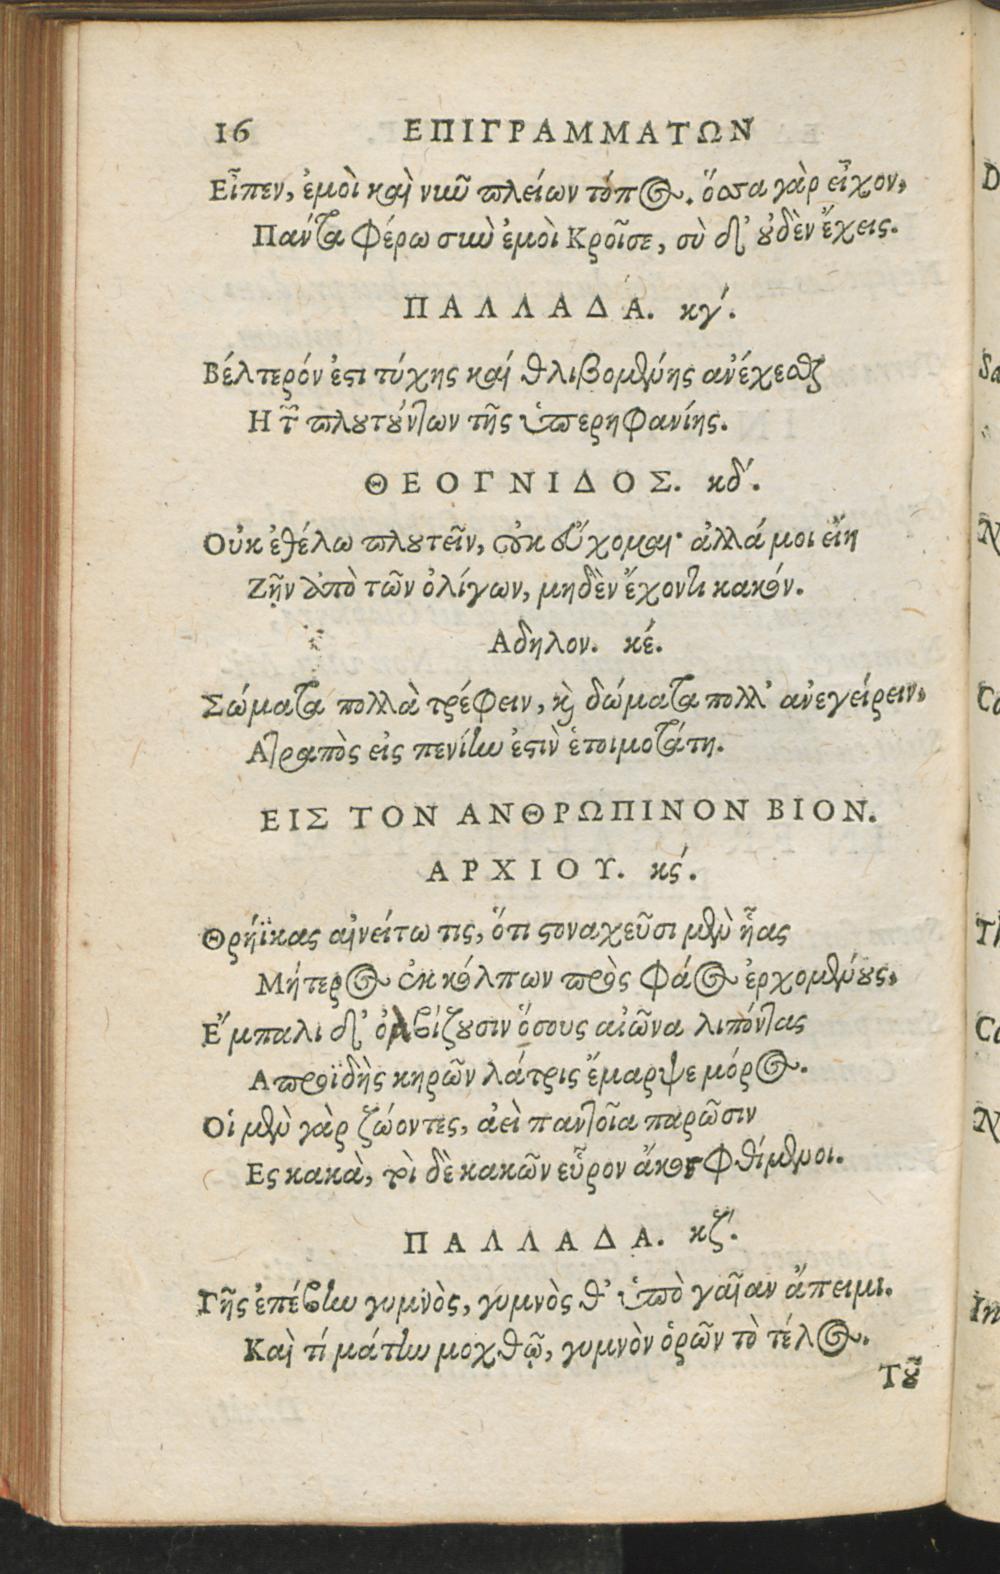 16 ΕΠΙΓΡΑΜΜΑΤΩΝ
Εἶπεν, ἐμοὶ καὶ νῦν πλείων τόπος. ὅσσα γὰρ εἶχον,
Πάντα φέρω σὺν ἐμοὶ Κροῖσε, σὺ δ' οὐδὲν ἔχεις.
ΠΑΛΛΑΔΑ. κγ'.
Βέλτερόν ἐστι τύχης καί θλιβομένης ἀνέχεσθαι
Η τῶν πλουτούντων τῆς ὑπερηφανίης.
ΘΕΟΓΝΙΔΟΣ. κδ'.
Οὐκ ἐθέλω πλουτεῖν, οὐκ εὔχομαι· ἀλλά μοι εἴη
Ζῇν ἀπὸ τῶν ὀλίγων, μηδὲν ἔχοντι κακόν.
Αδηλον. κέ.
Σώματα πολλὰ τρέφειν, καὶ δώματα πολλ' ἀνεγείρειν,
Ατραπὸς εἰς πενίην ἐστὶν ἑτοιμοτάτη.
ΕΙΣ ΤΟΝ ΑΝΘΡΩΠΙΝΟΝ ΒΙΟΝ.
ΑΡΧΙΟΥ. κϛ'.
Θρήϊκας αἰνείτω τις, ὅτι στοναχεῦσι μὲν ἧας
Μήτερος ἐκ κόλπων πρὸς φάος ἐρχομένους,
Ἔμπαλι δ' ὀλβίζουσιν ὅσους αἰῶνα λιπόντας
Απροϊδὴς κηρῶν λάτρις ἔμαρψε μόρος.
Οἱ μὲν γὰρ ζώοντες, ἀεὶ παντοῖα περῶσιν
Ες κακὰ, τοὶ δὲ κακῶν εὗρον ἄκος φθίμενοι.
ΠΑΛΛΑΔΑ. κζ'.
Γῆς ἐπέβην γυμνὸς, γυμνὸς θ' ὑπὸ γαῖαν ἄπειμι.
Καὶ τί μάτην μοχθῶ, γυμνὸν ὁρῶν τὸ τέλος.
Τοῦ